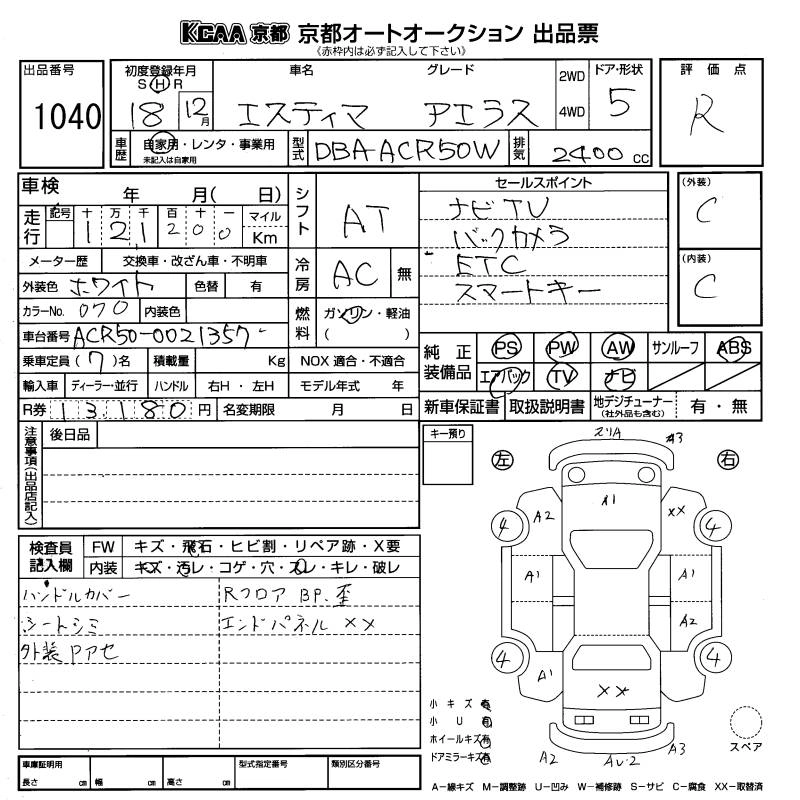 KCAA 京都 京都オートオークション 出品票
《赤枠内は必ず記入して下さい》
出品番号
1040
初度登録年月 車名 グレード
S H R
18 12月 エスティマ アエラス
2WD
4WD
ドア・形状
5
評価点
R
車歴 自家用・レンタ・事業用
未記入は自家用
型式 DBA-ACR50W
排気 2400 cc
車検 年 月( 日)
走行 記号 十 万 千 百 十 一 マイル
1 2 1 2 0 0 Km
メーター歴 交換車・改ざん車・不明車
外装色 ホワイト 色替 有
カラーNo. 070 内装色
車台番号 ACR50-0021357
乗車定員 (7)名 積載量 Kg NOX 適合・不適合
輸入車 ディーラー・並行 ハンドル 右H・左H モデル年式 年
R券 13180 円 名変期限 月 日
シフト AT
冷房 AC 無
燃料 ガソリン・軽油
( )
セールスポイント
ナビTV
バックカメラ
ETC
スマートキー
(外装)
C
(内装)
C
純正装備品 PS PW AW サンルーフ ABS
エアバック TV ナビ
新車保証書 取扱説明書 地デジチューナー 有・無
(社外品も含む)
注意事項(出品店記入)
後日品
キー預り
検査員記入欄
FW キズ・飛石・ヒビ割・リペア跡・X要
内装 キズ・汚レ・コゲ・穴・スレ・キレ・破レ
ハンドルカバー Rフロア BP.歪
シートシミ エンドパネル XX
外装Pアセ
左 右
2リA #3
A1
A2 XX
4 4
A1 A1
A2
4 4
A1
XX
A2 Aツ2 A3
小キズ有
小U有
ホイールキズ有
ドアミラーキズ有
スペア
A−線キズ M−調整跡 U−凹み W−補修跡 S−サビ C−腐食 XX−取替済
車庫証明用
長さ cm 幅 cm 高さ cm
型式指定番号 類別区分番号